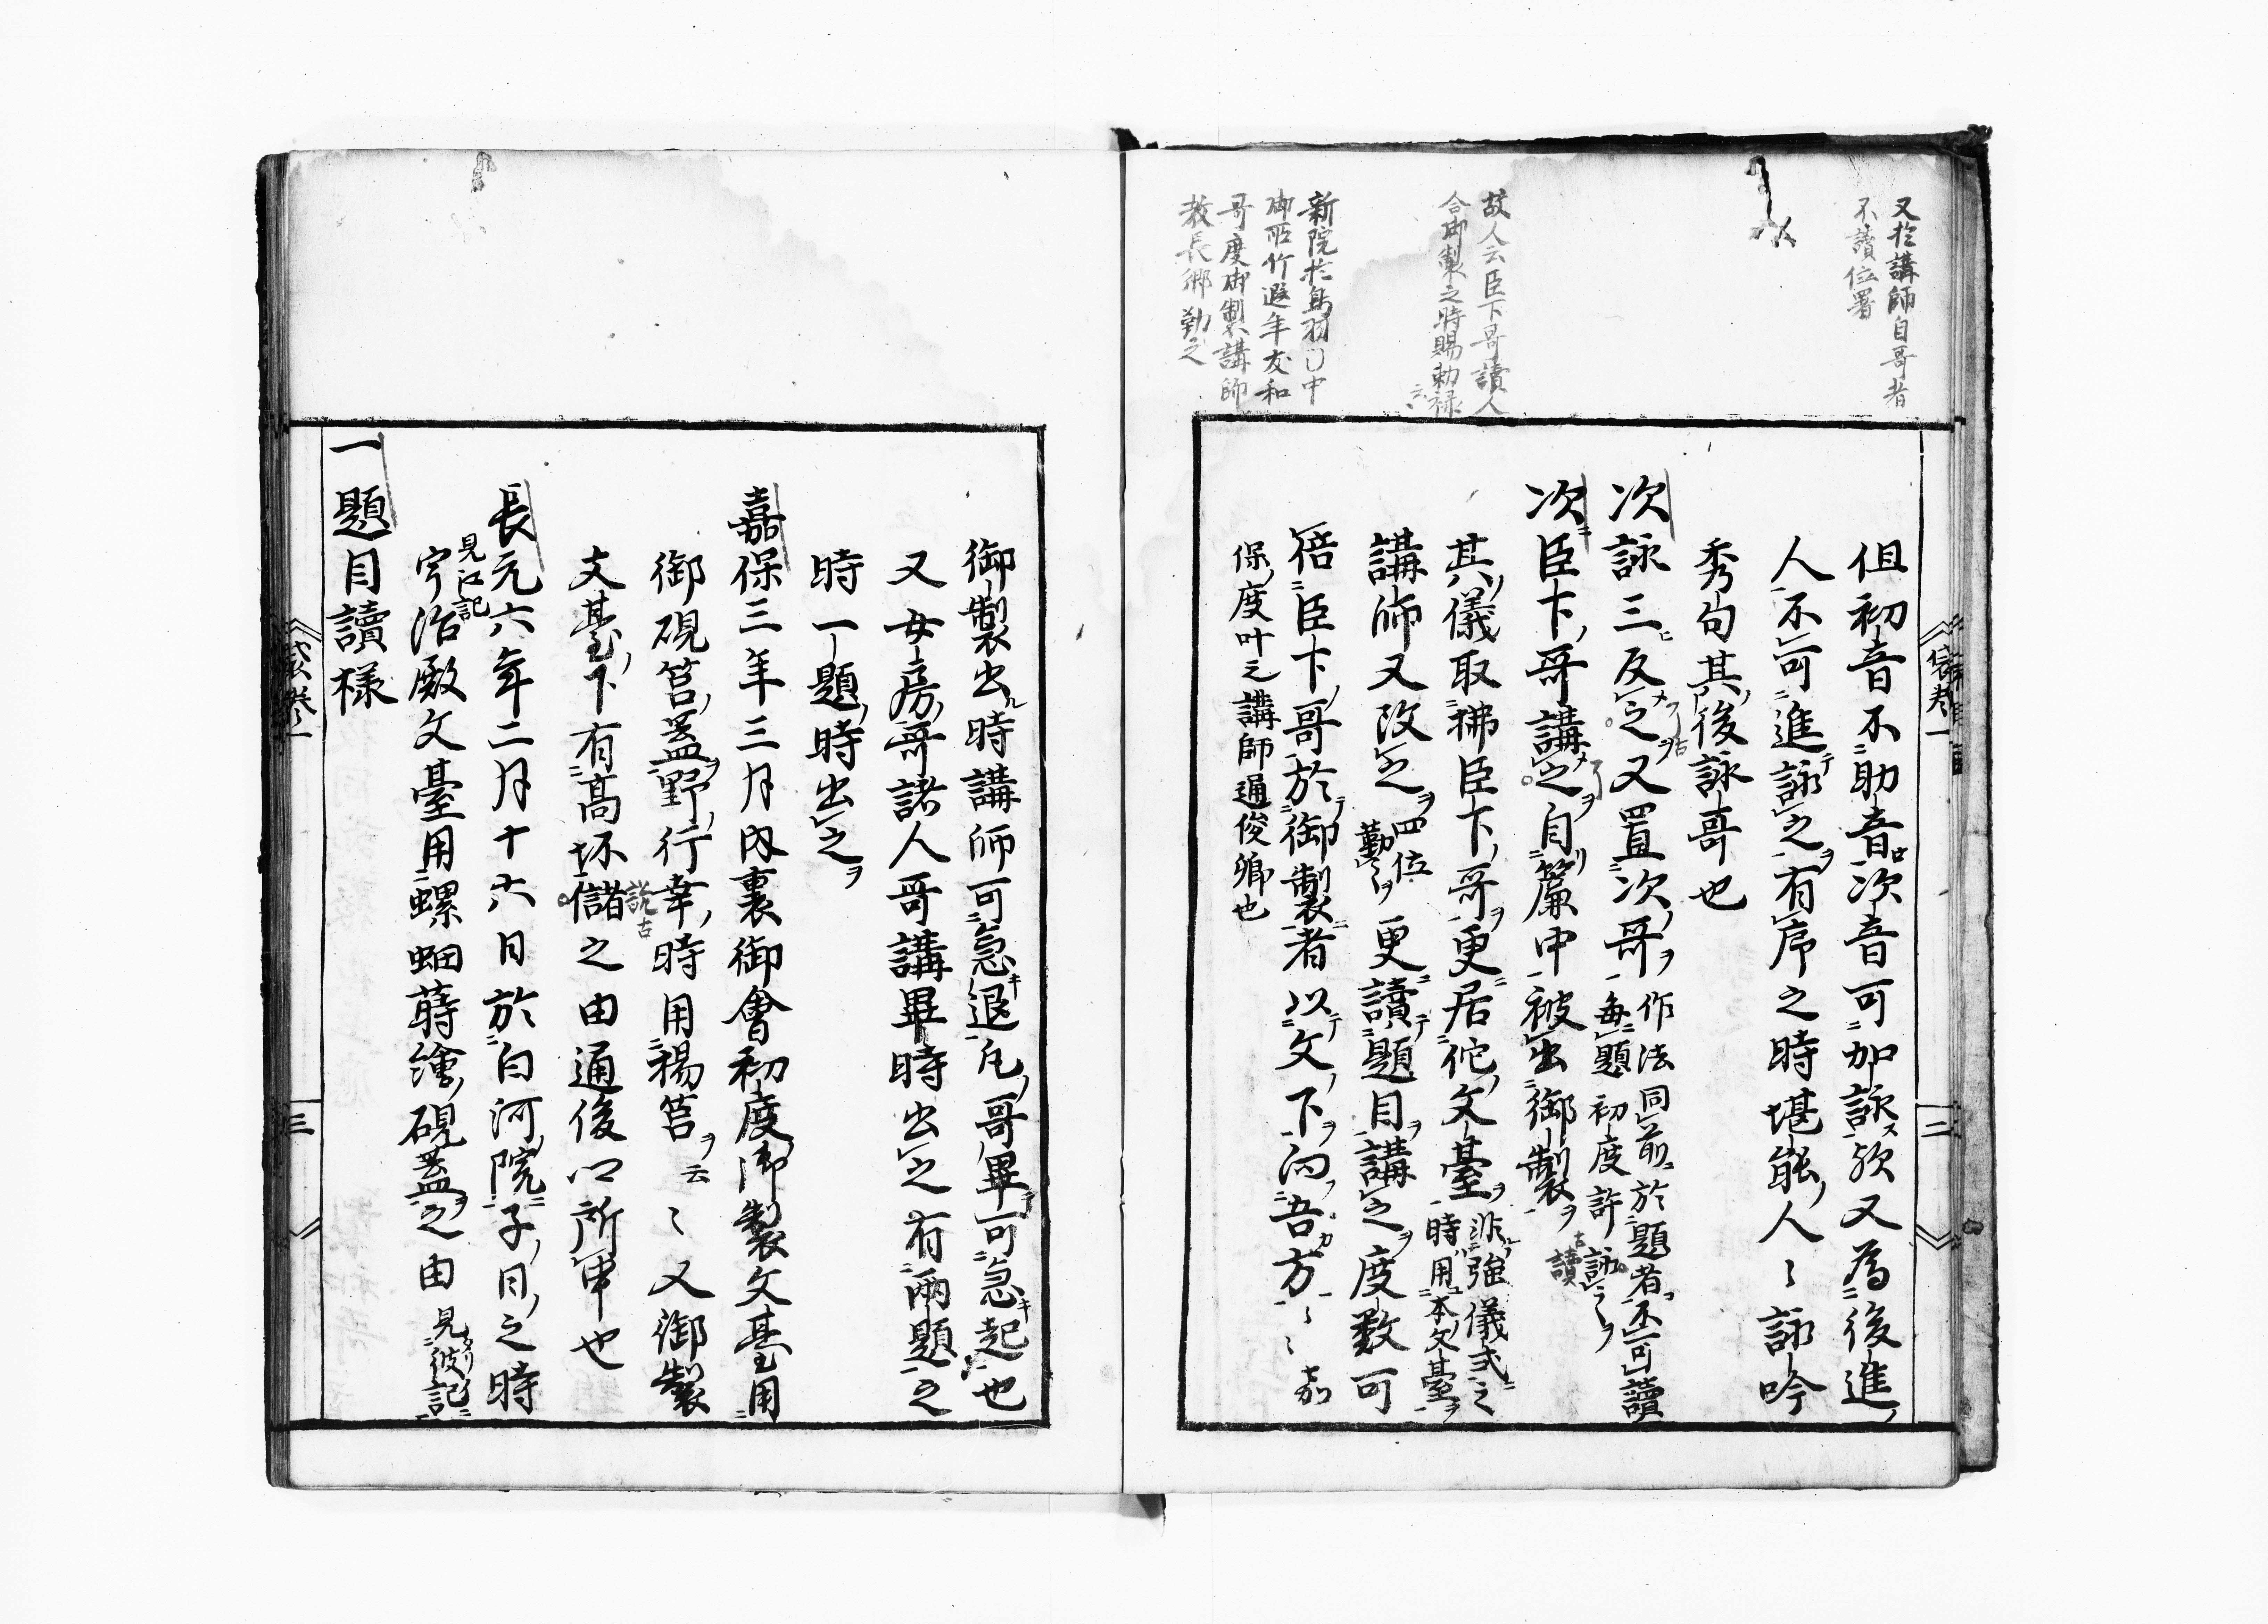 又於講師自哥者
不讀位署
故人云臣下哥讀人
合御製之時賜勅禄
云〻
新院於鳥羽
御所竹遐年友和
哥度御製講師
教長卿勤之
袋卷一
二
但初音不助音次音可加詠欤又為後進
人不可進詠之有序之時堪能人〻詠吟
秀句其後詠哥也
次詠三反之又置次哥作法同前於題者不可讀
毎題初度許詠之
次臣下哥講之自簾中被出御製
讀
其儀取拂臣下哥更居佗文臺非強儀式之
時用本文臺
講師又改之四位
勤之更讀題目講之度数可
倍臣下哥於御製者以文下向吾方〻嘉
保度叶之講師通俊卿也
御製出時講師可急退凡哥畢可急起也
又女房哥諸人哥講畢時出之有兩題之
時一題時出之
嘉保三年三月内裏御會初度御製文臺用
御硯筥蓋野行幸時用楊筥云〻又御製
文臺下有高坏儲之由通俊口所申也
長元六年二月十六日於白河院子日之時
見江記
宇治殿文臺用螺鈿蒔繪硯蓋之由見彼記
一題目讀様
袋卷一
三